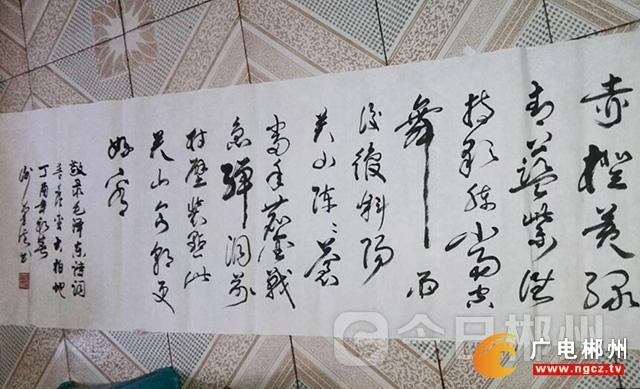 赤橙黄绿
青蓝紫谁
持彩练当空
舞雨
後復斜阳
关山阵〻苍
当年鏖战
急弹洞前
村壁装点此
关山今朝更
好看
敬录毛泽东诗词
菩萨蛮大柏地
丁酉年初春
书
今日郴州
广电郴州
www.ngcz.tv